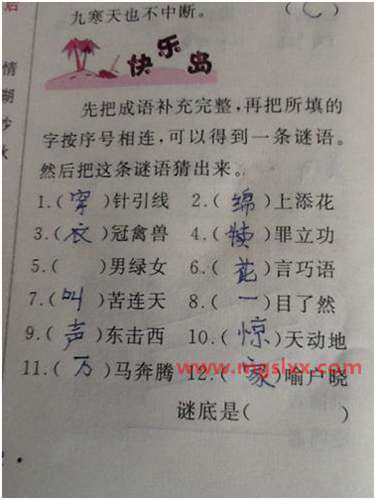 九寒天也不中断。
快乐岛
先把成语补充完整，再把所填的
字按序号相连，可以得到一条谜语。
然后把这条谜语猜出来。
1.( 穿 )针引线 2.( 绵 )上添花
3.( 衣 )冠禽兽 4.( )罪立功
5.( )男绿女 6.( 花 )言巧语
7.( 叫 )苦连天 8.( 一 )目了然
9.( 声 )东击西 10.( 惊 )天动地
11.( 万 )马奔腾 12.( 家 )喻户晓
www.mgslyx.com
谜底是( )
情